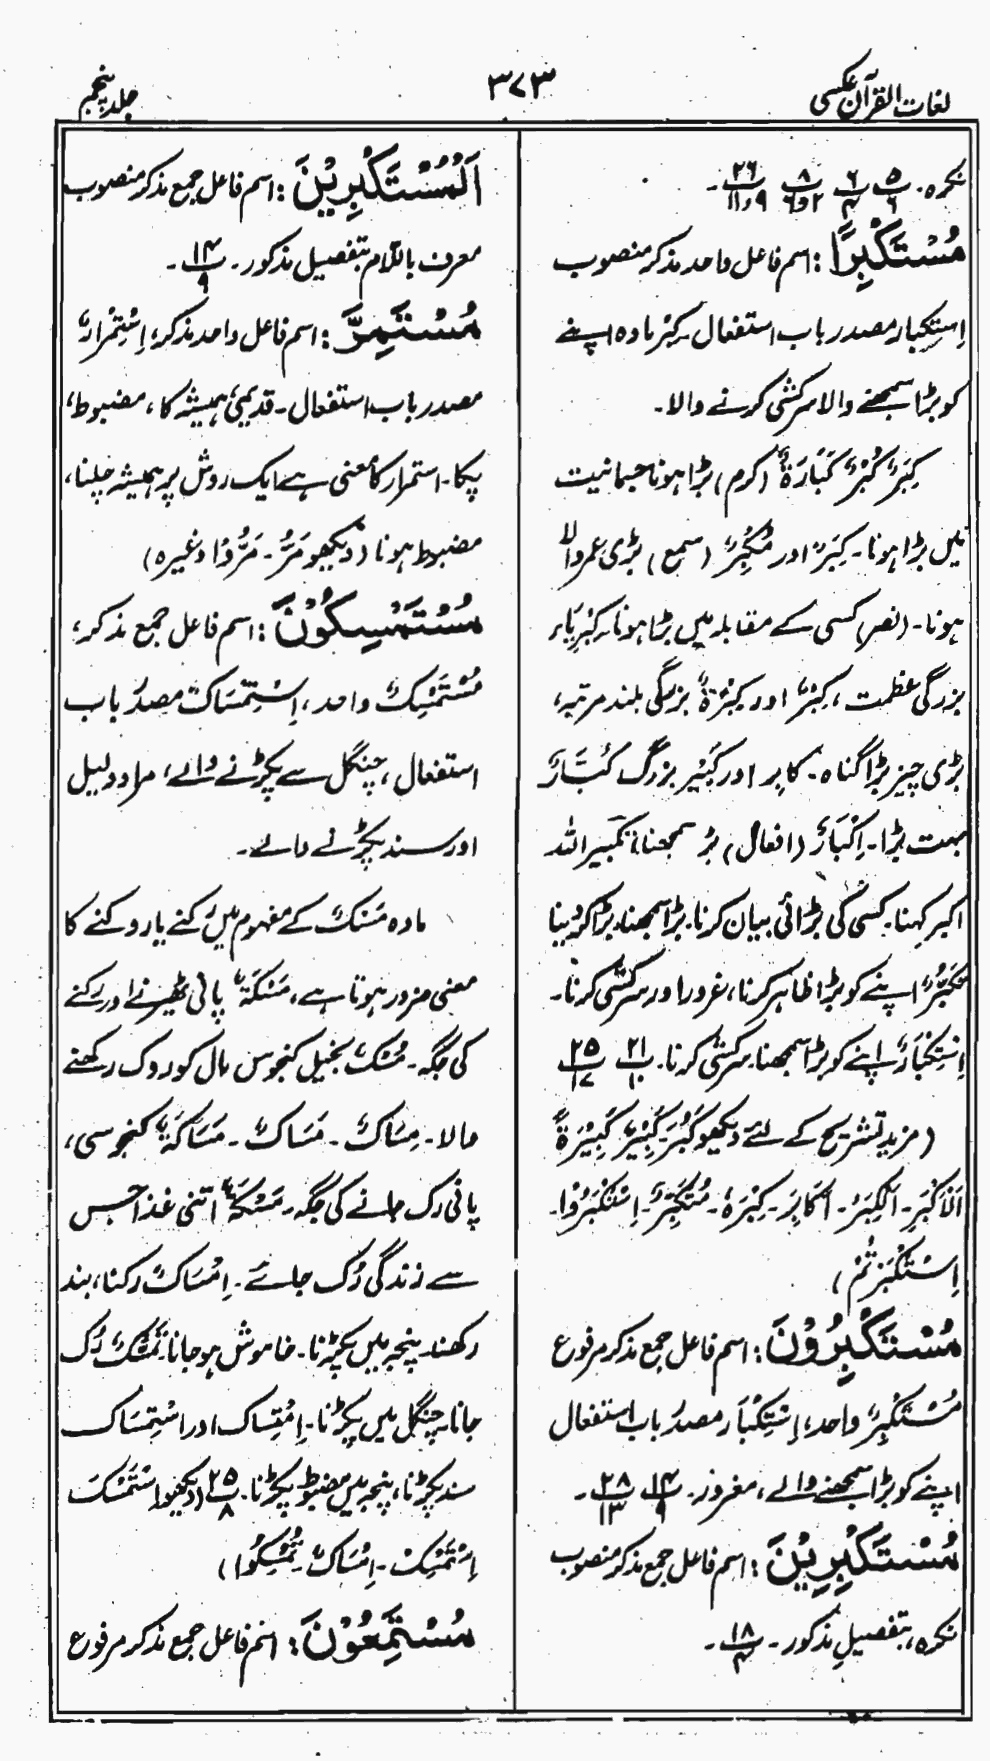 لغات القرآن عکسی
۳۷۳
جلد پنجم
نکرہ۔ پ۵/۶ پ۶/۴ پ۸/۲و۶ پ۲۶/۹و۱۱۔
مُسْتَکْبِرًا: اسم فاعل واحد مذکر منصوب
اِستِکبار مصدر باب استفعال۔ کِبْر مادہ اپنے
کو بڑا سمجھنے والا سرکشی کرنے والا۔
کِبَرٌ کُبْرٌ کَبَارَۃٌ (کرم) بڑا ہونا جسمانیت
میں بڑا ہونا۔ کِبَرٌ اور مَکْبِرٌ (سمع) بڑی عمر والا
ہونا۔ (نصر) کسی کے مقابلہ میں بڑا ہونا۔ کِبْرِیَاء
بزرگی عظمت، کِبْرٌ اور کِبْرَۃٌ بزرگی بلند مرتبہ،
بڑی چیز بڑا گناہ۔ کابر اور کَبِیْر بزرگ کُبَّارٌ
بہت بڑا۔ اِکْبَارٌ (افعال) بڑا سمجھنا، تکبیر اللہ
اکبر کہنا۔ کسی کی بڑائی بیان کرنا۔ بڑا سمجھنا، بڑا کر دینا
تَکَبُّرٌ اپنے کو بڑا ظاہر کرنا، غرور اور سرکشی کرنا۔
اِسْتِکْبَارٌ اپنے کو بڑا سمجھنا۔ سرکشی کرنا۔ پ۲۱/۱۰ پ۲۵/۱۷
(مزید تشریح کے لئے دیکھو کَبُرَ۔ کَبِیْرٌ کَبِیْرَۃً
اَلْاَکْبَرِ۔ اَلْکِبَرُ۔ اَکَابِرَ۔ کِبْرَہٗ۔ مُتَکَبِّرٌ۔ اِسْتَکْبَرُوْا۔
اِسْتَکْبَرْتُمْ)
مُسْتَکْبِرُوْنَ: اسم فاعل جمع مذکر مرفوع
مُسْتَکْبِرٌ واحد، اِسْتِکْبَار مصدر باب استفعال
اپنے کو بڑا سمجھنے والے، مغرور۔ پ۱۴/۹ پ۲۸/۱۳۔
مُسْتَکْبِرِیْنَ: اسم فاعل جمع مذکر منصوب
نکرہ، بتفصیلِ مذکور۔ پ۱۸/۴۔
اَلْمُسْتَکْبِرِیْنَ: اسم فاعل جمع مذکر منصوب
معرف باللّام بتفصیل مذکور۔ پ۱۴/۹۔
مُسْتَمِرٌّ: اسم فاعل واحد مذکر، اِسْتِمْرَارٌ
مصدر باب استفعال۔ قدیمی ہمیشہ کا، مضبوط،
پکا۔ استمرار کا معنی ہے ایک روش پر ہمیشہ چلنا،
مضبوط ہونا (دیکھو مَرَّ۔ مَرُّوْا وغیرہ)
مُسْتَمْسِکُوْنَ: اسم فاعل جمع مذکر،
مُسْتَمْسِکٌ واحد، اِسْتِمْسَاک مصدر باب
استفعال، چنگل سے پکڑنے والے، مراد دلیل
اور سند پکڑنے والے۔
مادہ مَسْکٌ کے مفہوم میں رُکنے یا روکنے کا
معنی ضرور ہوتا ہے، مَسَکَۃٌ پانی ٹھیرنے اور رکنے
کی جگہ۔ مُسُکٌ بخیل کنجوس مال کو روک رکھنے
والا۔ مِسَاکٌ۔ مَسَاکٌ۔ مَسَاکَۃٌ کنجوسی،
پانی رک جانے کی جگہ۔ مُسْکَۃٌ اتنی غذا جس
سے زندگی رُک جائے۔ اِمْسَاکٌ رکنا، بند
رکھنا۔ پنجہ میں پکڑنا۔ خاموش ہو جانا تَمَسُّکٌ رُک
جانا۔ چنگل میں پکڑنا۔ اِمْتِسَاک اور اسْتِمْسَاک
سند پکڑنا، پنجہ میں مضبوط پکڑنا۔ پ۲۵/۸ (دیکھو اسْتَمْسَکَ
اِسْتَمْسِکْ۔ اِمْسَاکٌ۔ تُمْسِکُوْا)
مُسْتَمِعُوْنَ: اسم فاعل جمع مذکر مرفوع